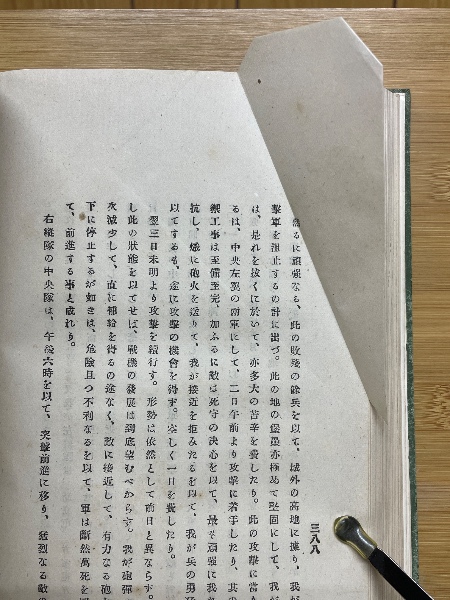 三八八
然るに頑強なる、此の敗殘の餘兵を以て、城外の高地に據り、我が
擊軍を阻止するの計に出づ。此の地の堡壘亦極めて堅固にして、我が
は、是れを拔くに於いて、亦多大の苦辛を費したり。此の攻擊に當り
るは、中央左翼の兩軍にして、二日午前より攻擊に着手したり、其の
禦工事は至備至完、加ふるに敵は死守の決心を以て、最も頑强に我が
抗し、熾に砲火を送りて、我が接近を拒みたるを以て、我が兵の勇猛
以てするも、遂に攻擊の機會を得ず。空しく一日を費したり。
翌三日未明より攻擊を續行す。形勢は依然として前日と異ならず。
し此の狀態を以てせば、戰機の發展は到底望むべからず。我が砲彈
次減少して、直に補給を得るの途なく、敵に接近して、有力なる砲
下に停止するが如きは、危險且つ不利なるを以て、軍は斷然萬死を
て、前進する事と成れり。
右縱隊の中央隊は、午後六時を以て、突擊前進に移り、猛烈なる敵の